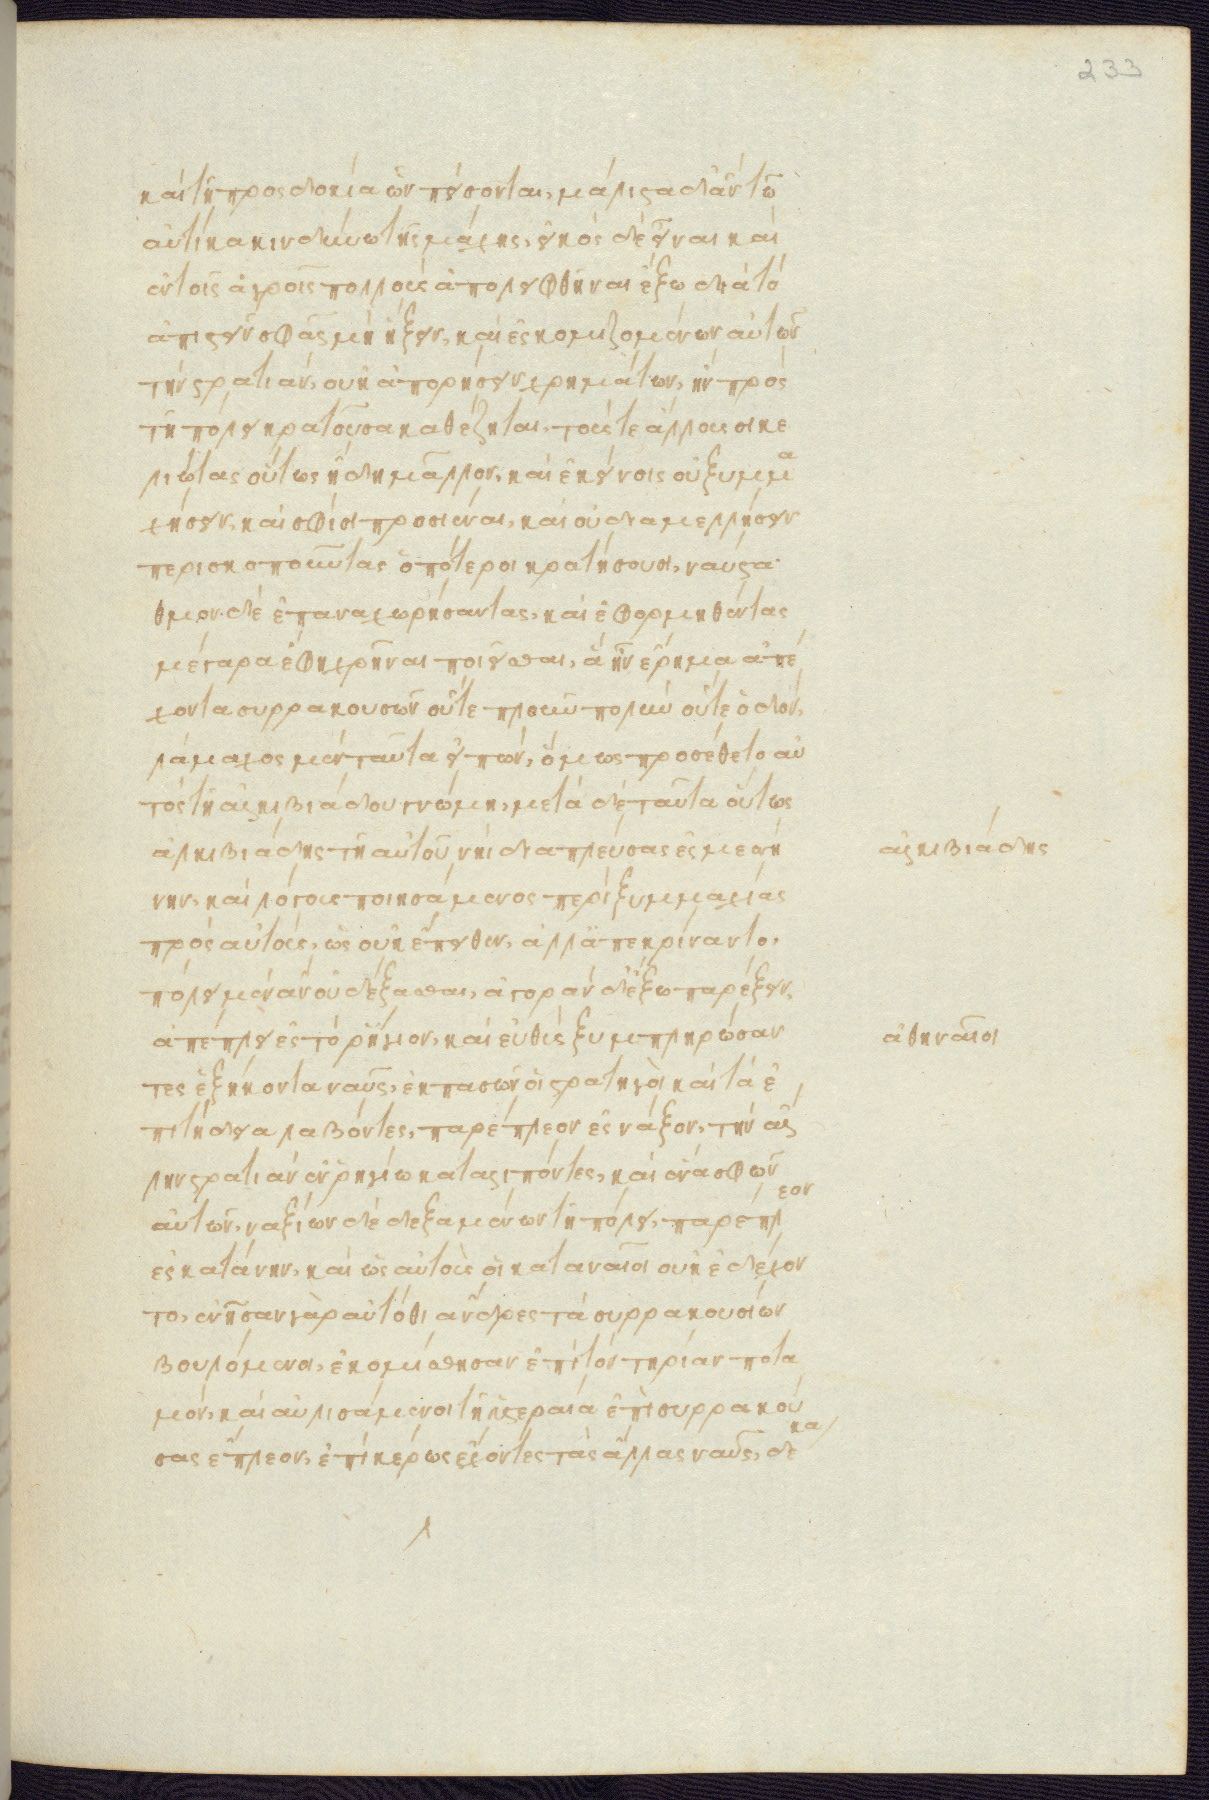 233
καὶ τῆ προσδοκία ὧν πείσονται, μάλιστα δ' ἂν τῶ
αὐτίκα κινδύνω τῆς μάχης, εἰκὸς δὲ εἶναι καὶ
ἐν τοῖς ἀγροῖς πολλοὺς ἀπολειφθῆναι ἔξω διὰ τὸ
ἀπιστεῖν σφᾶς μὴ ἥξειν, καὶ ἐσκομιζομένων αὐτῶν
τὴν στρατιὰν, οὐκ ἀπορήσειν χρημάτων, ἢν πρὸς
τῆ πόλει κρατοῦσα καθέζηται, τούς τε ἄλλους σικε
λιώτας οὕτως ἤδη μᾶλλον, καὶ ἐκείνοις οὐ ξυμμα
χήσειν, καὶ σφίσι προσιέναι, καὶ οὐ διαμελλήσειν
περισκοποῦντας ὁπότεροι κρατήσουσι, ναύστα
θμον δὲ ἐπαναχωρήσαντας, καὶ ἐφορμηθέντας
μέγαρα ἔφη χρῆναι ποιεῖσθαι, ἃ ἦν ἐρῆμα ἀπέ
χοντα συρρακουσῶν οὔτε πλοῦν πολὺν οὔτε ὁδόν,
λάμαχος μὲν ταῦτα εἰπὼν, ὅμως προσέθετο αὐ
τὸς τῆ ἀλκιβιάδου γνώμη, μετὰ δὲ ταῦτα οὕτως
ἀλκιβιάδης τῆ αὐτοῦ νηὶ διαπλεύσας ἐς μεσσή
νην, καὶ λόγους ποιησάμενος περὶ ξυμμαχίας
πρὸς αὐτοὺς, ὡς οὐκ ἔπειθεν, ἀλλ' ἀπεκρίναντο,
πόλει μὲν ἂν οὐ δέξασθαι, ἀγορὰν δ' ἔξω παρέξειν,
ἀπέπλει ἐς τὸ ῥήγιον, καὶ εὐθὺς ξυμπληρώσαν
τες ἑξήκοντα ναῦς, ἐκ πασῶν οἱ στρατηγοὶ καὶ τὰ ἐ
πιτήδεια λαβόντες, παρέπλεον ἐς νάξον, τὴν ἄλ
λην στρατιὰν ἐν ῥηγίω καταλιπόντες, καὶ ἕνα σφῶν
αὐτῶν, ναξίων δὲ δεξαμένων τῆ πόλει, παρέπλεον
ἐς κατάνην, καὶ ὡς αὐτοὺς οἱ καταναῖοι οὐκ ἐδέχον
το, ἐνῆσαν γὰρ αὐτόθι ἄνδρες τὰ συρρακουσίων
βουλόμενοι, ἐκομίσθησαν ἐπὶ τὸν τηρίαν ποτα
μόν, καὶ αὐλισάμενοι τῆ ὑστεραία ἐπὶ συρρακού
σας ἔπλεον, ἐπὶ κέρως ἔχοντες τὰς ἄλλας ναῦς, δέκα
ἀλκιβιάδης
ἀθηναῖοι